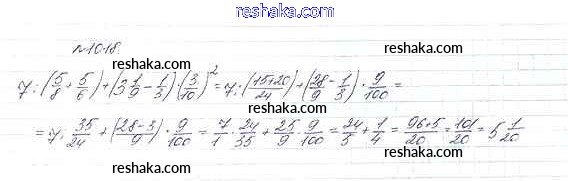 www.reshaka.ru
№1018.
reshaka.ru
7:(5/8+5/6)+(3 1/9-1/3)·(3/10)²=7:(15+20)/24)+(28/9-1/3)·9/100=
reshaka.ru
=7:35/24+(28-3/9)·9/100=7/1·24/35+25/9·9/100=24/5+1/4=96+5/20=101/20=5 1/20
reshaka.ru